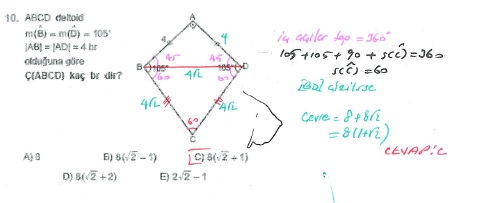 10. ABCD deltoid
m(B̂) = m(D̂) = 105°
|AB| = |AD| = 4 br
olduğuna göre
Ç(ABCD) kaç br dir?
A
4 4
45 45
B 105° 105° D
4√2
60 60
4√2 4√2
60
C
iç açılar top = 360°
105 + 105 + 90 + s(Ĉ) = 360
s(Ĉ) = 60
[BD] çizilirse
Çevre = 8 + 8√2
= 8(1+√2)
CEVAP C
A) 8 B) 8(√2 − 1) C) 8(√2 + 1)
D) 8(√2 + 2) E) 2√2 − 1